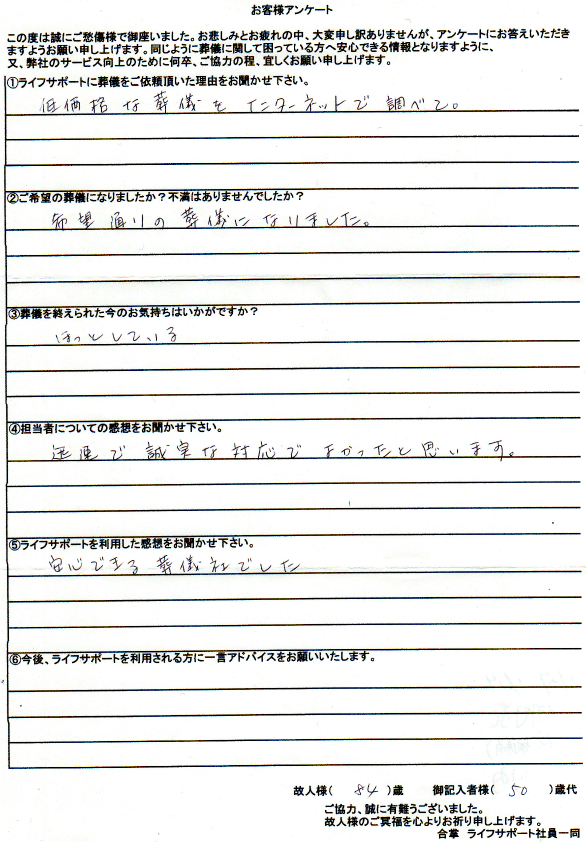 お客様アンケート
この度は誠にご愁傷様で御座いました。お悲しみとお疲れの中、大変申し訳ありませんが、アンケートにお答えいただき
ますようお願い申し上げます。同じように葬儀に関して困っている方へ安心できる情報となりますように、
又、弊社のサービス向上のために何卒、ご協力の程、宜しくお願い申し上げます。
①ライフサポートに葬儀をご依頼頂いた理由をお聞かせ下さい。
低価格な葬儀をインターネットで調べて。
②ご希望の葬儀になりましたか？不満はありませんでしたか？
希望通りの葬儀になりました。
③葬儀を終えられた今のお気持ちはいかがですか？
ほっとしている
④担当者についての感想をお聞かせ下さい。
迅速で誠実な対応でよかったと思います。
⑤ライフサポートを利用した感想をお聞かせ下さい。
安心できる葬儀社でした
⑥今後、ライフサポートを利用される方に一言アドバイスをお願いいたします。
故人様( 84 )歳 御記入者様( 50 )歳代
ご協力、誠に有難うございました。
故人様のご冥福を心よりお祈り申し上げます。
合掌 ライフサポート社員一同